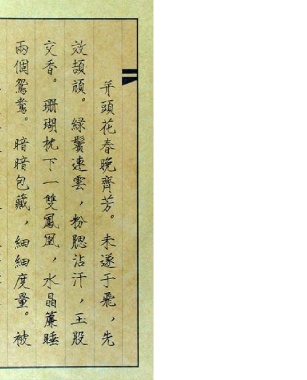 并頭花春晚齊芳。未遂于飛,先
效頡頏。綠鬢連雲,粉腮沾汗,玉股
交香。珊瑚枕下一雙鳳凰,水晶簾睡
兩個鴛鴦。暗暗包藏,細細度量。被